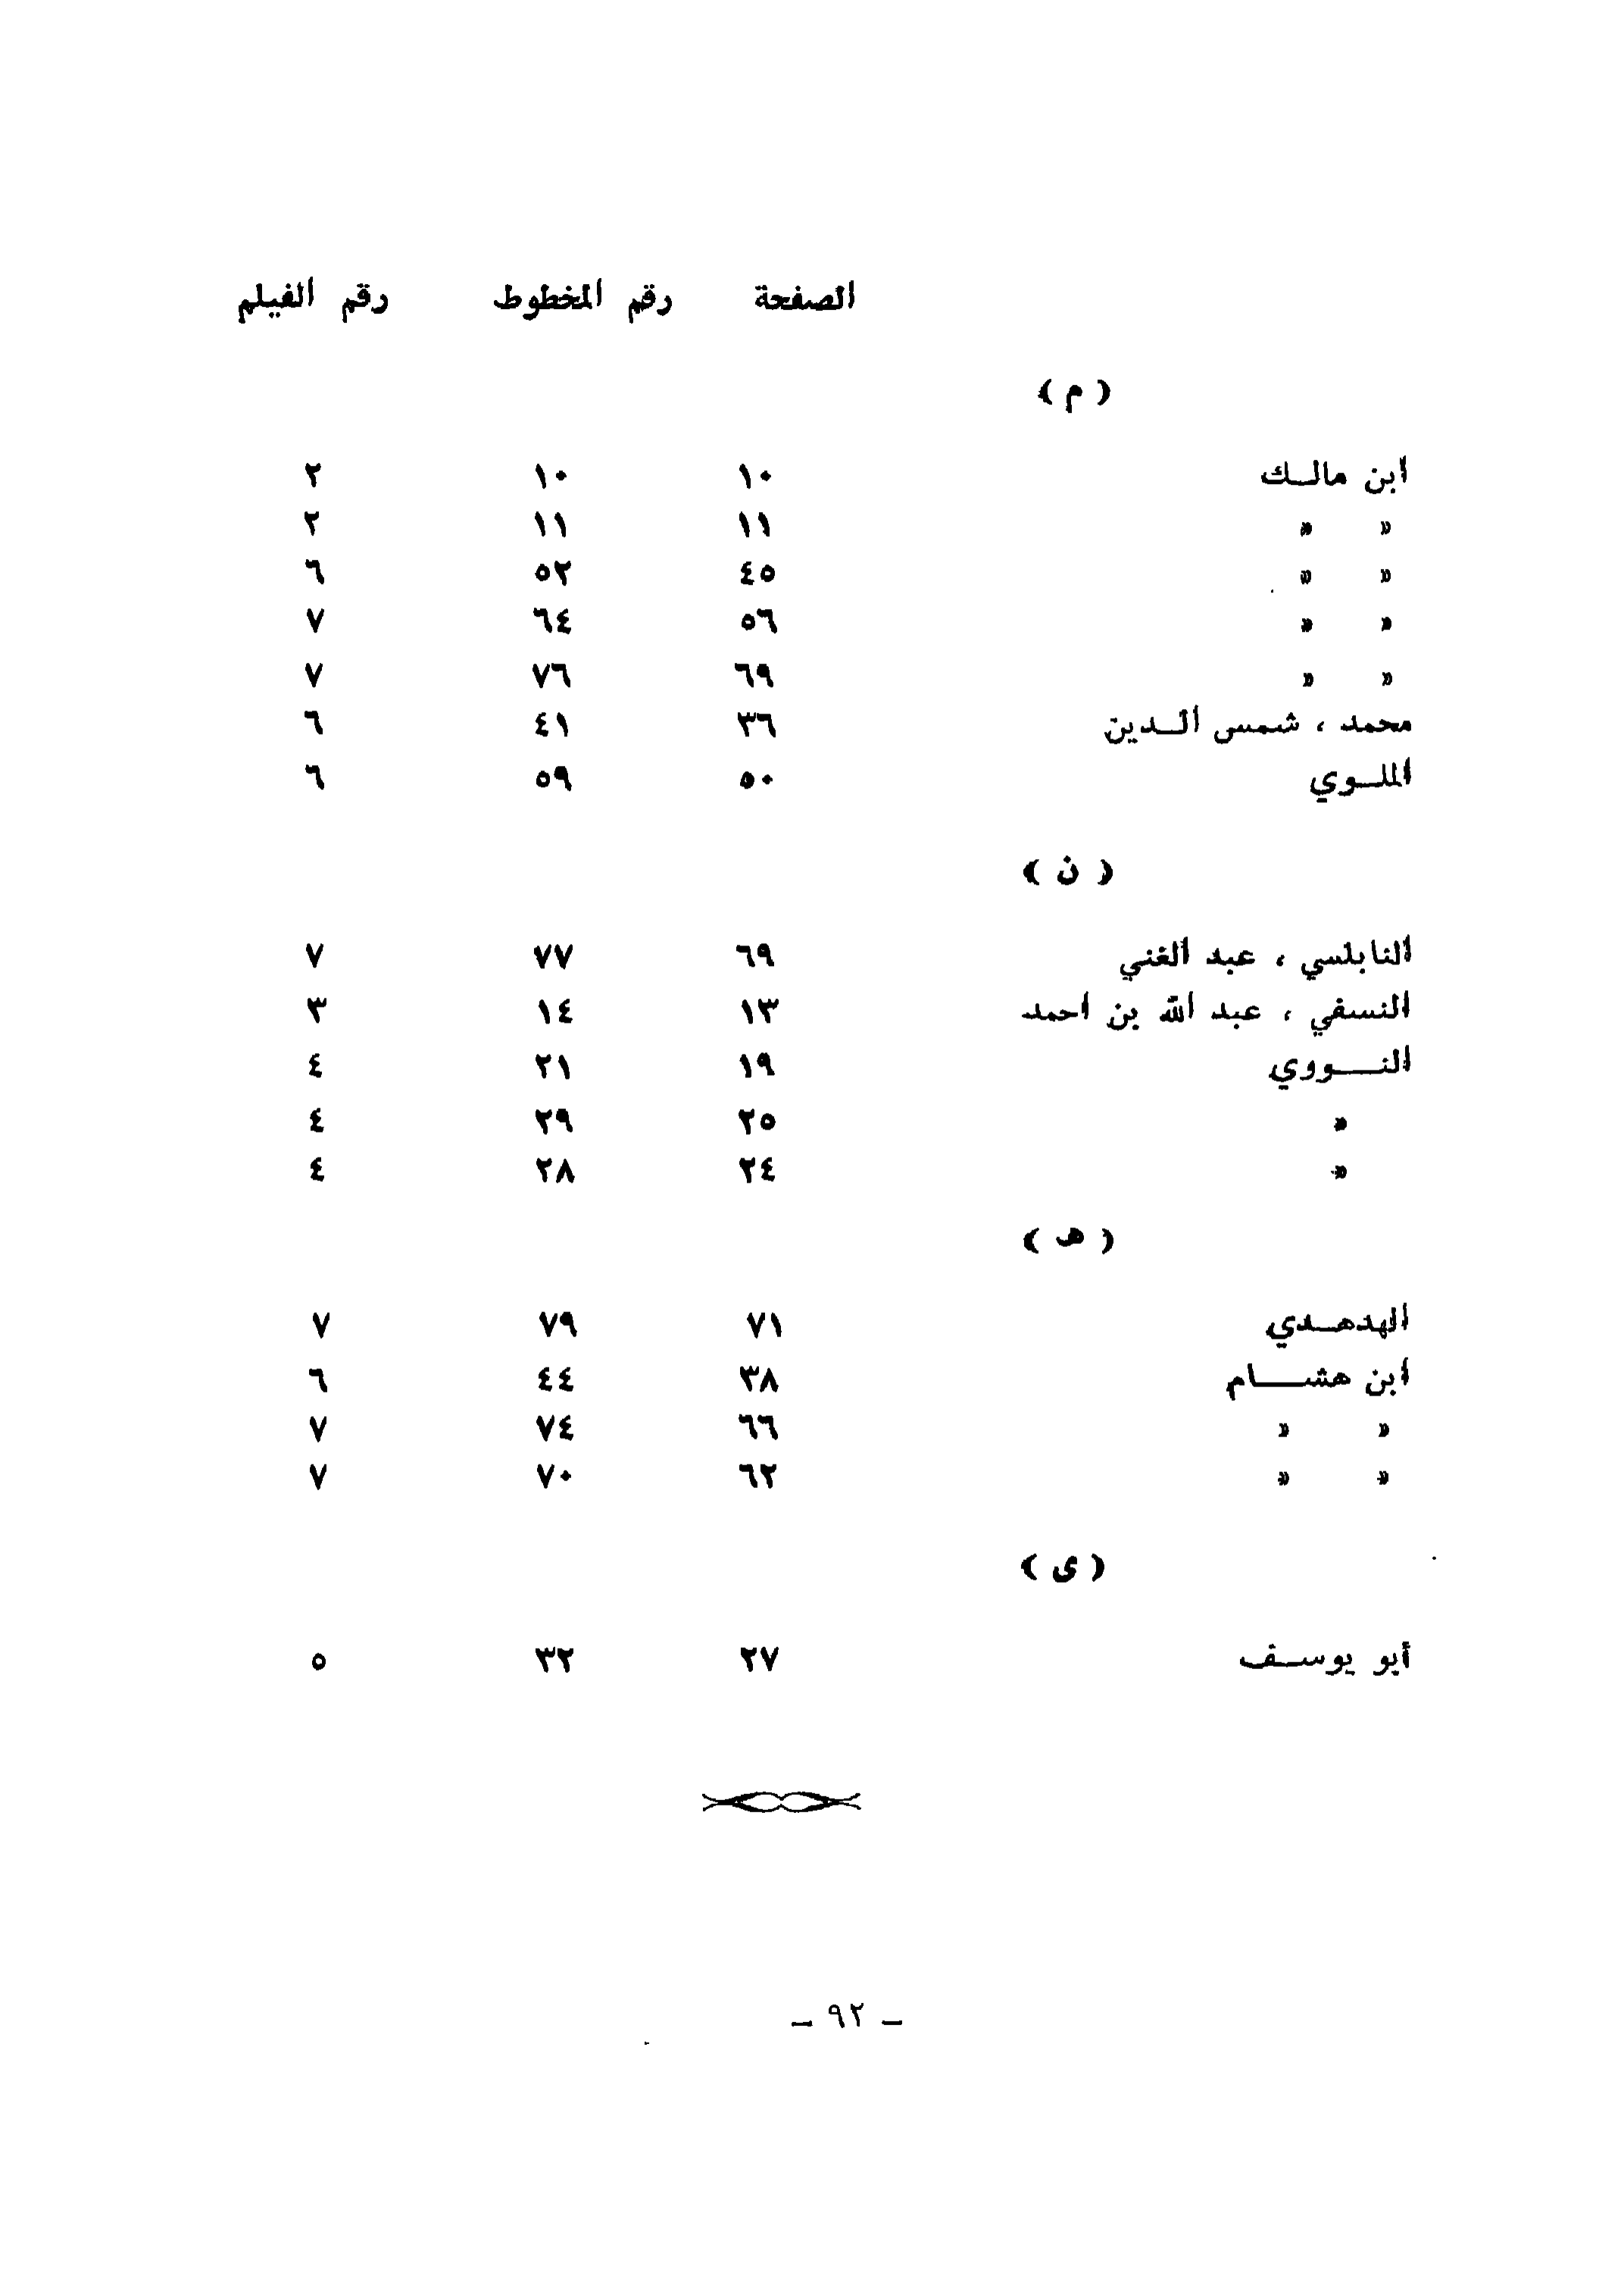 الصفحة رقم المخطوط رقم الفيلم
( م )
ابن مالـك ١٠ ١٠ ٢
» » ١١ ١١ ٢
» » ٤٥ ٥٢ ٦
» » ٥٦ ٦٤ ٧
» » ٦٩ ٧٦ ٧
محمد ، شمس الـدين ٣٦ ٤١ ٦
الملـوي ٥٠ ٥٩ ٦
( ن )
النابلسي ، عبد الغني ٦٩ ٧٧ ٧
النسفي ، عبد الله بن احمد ١٣ ١٤ ٣
النـــووي ١٩ ٢١ ٤
» ٢٥ ٢٩ ٤
» ٢٤ ٢٨ ٤
( هـ )
الهدهـدي ٧١ ٧٩ ٧
ابن هشـــام ٣٨ ٤٤ ٦
» » ٦٦ ٧٤ ٧
» » ٦٢ ٧٠ ٧
( ى )
أبو يوسـف ٢٧ ٣٢ ٥
– ٩٢ –